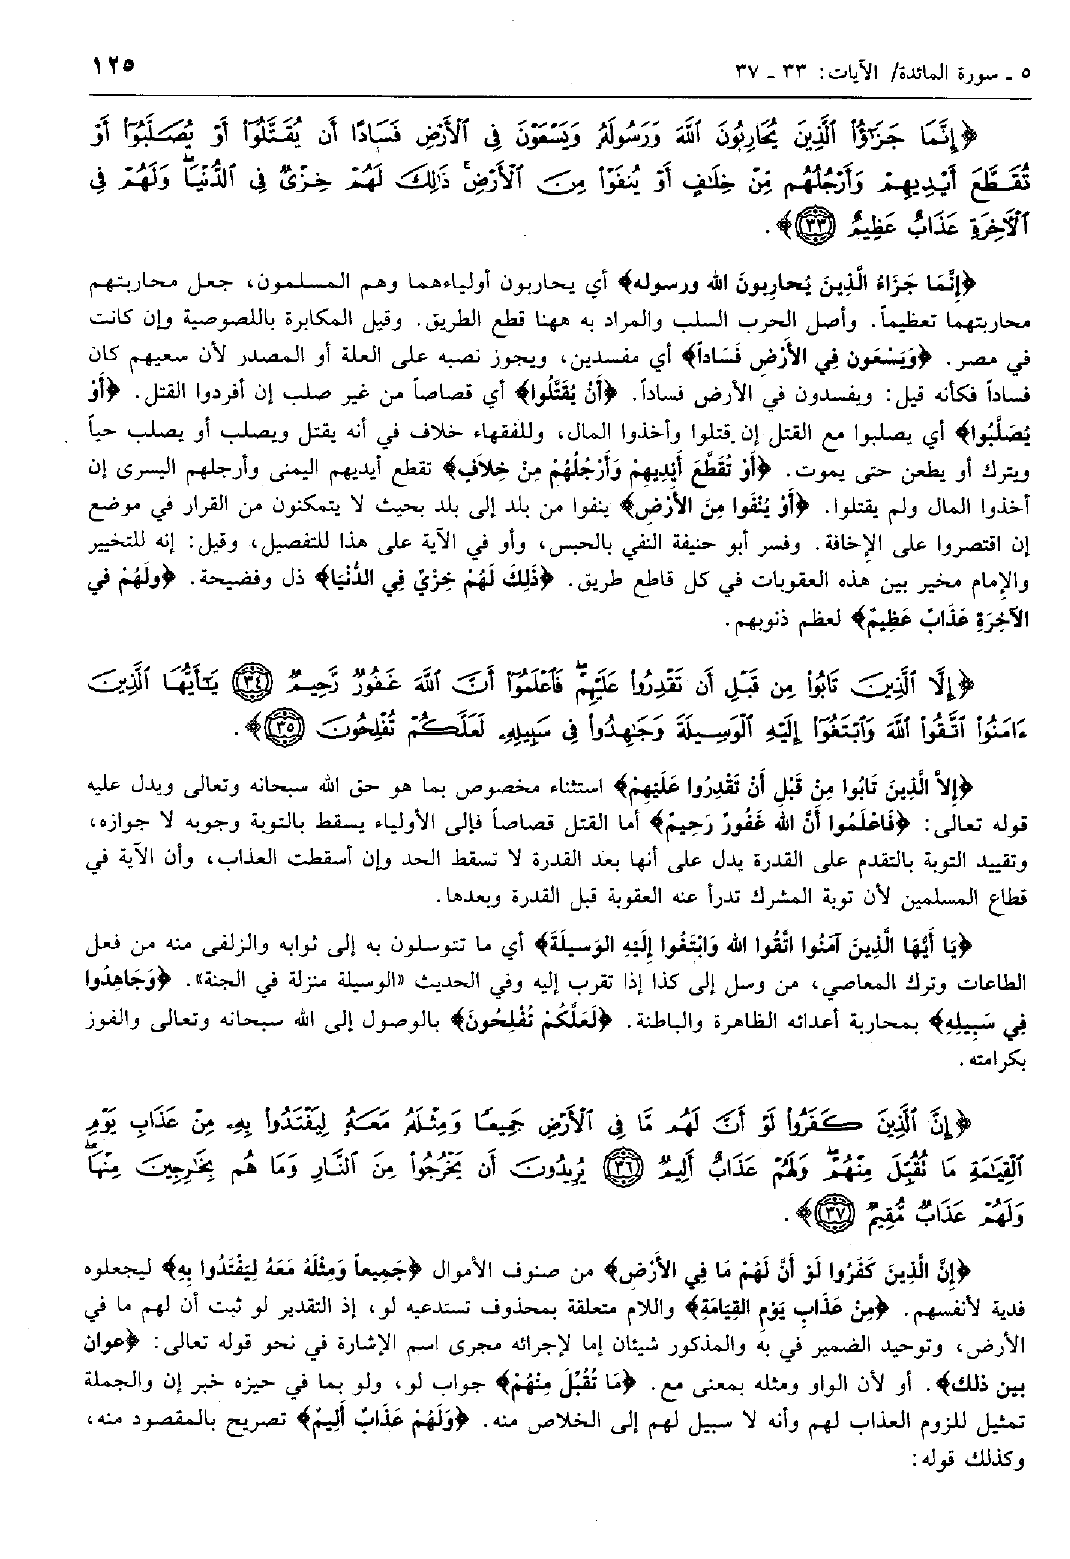 ٥ ـ سورة المائدة/ الآيات: ٣٣ ـ ٣٧
١٢٥
﴿إِنَّمَا جَزَٰٓؤُا۟ ٱلَّذِينَ يُحَارِبُونَ ٱللَّهَ وَرَسُولَهُۥ وَيَسْعَوْنَ فِى ٱلْأَرْضِ فَسَادًا أَن يُقَتَّلُوٓا۟ أَوْ يُصَلَّبُوٓا۟ أَوْ
تُقَطَّعَ أَيْدِيهِمْ وَأَرْجُلُهُم مِّنْ خِلَٰفٍ أَوْ يُنفَوْا۟ مِنَ ٱلْأَرْضِ ۚ ذَٰلِكَ لَهُمْ خِزْىٌ فِى ٱلدُّنْيَا ۖ وَلَهُمْ فِى
ٱلْأَخِرَةِ عَذَابٌ عَظِيمٌ ﴿٣٣﴾﴾.
﴿إِنَّمَا جَزَاءُ الَّذِينَ يُحارِبونَ الله ورسوله﴾ أي يحاربون أولياءهما وهم المسلمون، جعل محاربتهم
محاربتهما تعظيماً. وأصل الحرب السلب والمراد به ههنا قطع الطريق. وقيل المكابرة باللصوصية وإن كانت
في مصر. ﴿وَيَسْعَون فِي الأَرْضِ فَسَاداً﴾ أي مفسدين، ويجوز نصبه على العلة أو المصدر لأن سعيهم كان
فساداً فكأنه قيل: ويفسدون في الأرض فساداً. ﴿أَنْ يُقَتَّلُوا﴾ أي قصاصاً من غير صلب إن أفردوا القتل. ﴿أَوْ
يُصَلَّبُوا﴾ أي يصلبوا مع القتل إن قتلوا وأخذوا المال، وللفقهاء خلاف في أنه يقتل ويصلب أو يصلب حياً
ويترك أو يطعن حتى يموت. ﴿أَوْ تُقَطَّع أَيْدِيهِمْ وَأَرْجُلُهُمْ مِنْ خِلاَف﴾ تقطع أيديهم اليمنى وأرجلهم اليسرى إن
أخذوا المال ولم يقتلوا. ﴿أَوْ يُنْفَوا مِنَ الأَرْضِ﴾ ينفوا من بلد إلى بلد بحيث لا يتمكنون من القرار في موضع
إن اقتصروا على الإخافة. وفسر أبو حنيفة النفي بالحبس، وأو في الآية على هذا للتفصيل، وقيل: إنه للتخيير
والإمام مخير بين هذه العقوبات في كل قاطع طريق. ﴿ذَلِكَ لَهُمْ خِزْيٌ فِي الدُّنْيَا﴾ ذل وفضيحة. ﴿ولَهُمْ في
الآخِرَةِ عَذَابٌ عَظِيمٌ﴾ لعظم ذنوبهم.
﴿إِلَّا ٱلَّذِينَ تَابُوا۟ مِن قَبْلِ أَن تَقْدِرُوا۟ عَلَيْهِمْ ۖ فَٱعْلَمُوٓا۟ أَنَّ ٱللَّهَ غَفُورٌ رَّحِيمٌ ﴿٣٤﴾ يَٰٓأَيُّهَا ٱلَّذِينَ
ءَامَنُوا۟ ٱتَّقُوا۟ ٱللَّهَ وَٱبْتَغُوٓا۟ إِلَيْهِ ٱلْوَسِيلَةَ وَجَٰهِدُوا۟ فِى سَبِيلِهِۦ لَعَلَّكُمْ تُفْلِحُونَ ﴿٣٥﴾﴾.
﴿إِلاَّ الَّذِينَ تَابُوا مِنْ قَبْلِ أَنْ تَقْدِرُوا عَلَيْهِمْ﴾ استثناء مخصوص بما هو حق الله سبحانه وتعالى ويدل عليه
قوله تعالى: ﴿فَاعْلَمُوا أَنَّ الله غَفُورٌ رَحِيمٌ﴾ أما القتل قصاصاً فإلى الأولياء يسقط بالتوبة وجوبه لا جوازه،
وتقييد التوبة بالتقدم على القدرة يدل على أنها بعد القدرة لا تسقط الحد وإن أسقطت العذاب، وأن الآية في
قطاع المسلمين لأن توبة المشرك تدرأ عنه العقوبة قبل القدرة وبعدها.
﴿يَا أَيُّهَا الَّذِينَ آمَنُوا اتَّقُوا الله وَابْتَغُوا إِلَيْهِ الوَسِيلَةَ﴾ أي ما تتوسلون به إلى ثوابه والزلفى منه من فعل
الطاعات وترك المعاصي، من وسل إلى كذا إذا تقرب إليه وفي الحديث «الوسيلة منزلة في الجنة». ﴿وَجَاهِدُوا
فِي سَبِيلِهِ﴾ بمحاربة أعدائه الظاهرة والباطنة. ﴿لَعَلَّكُمْ تُفْلِحُونَ﴾ بالوصول إلى الله سبحانه وتعالى والفوز
بكرامته.
﴿إِنَّ ٱلَّذِينَ كَفَرُوا۟ لَوْ أَنَّ لَهُم مَّا فِى ٱلْأَرْضِ جَمِيعًا وَمِثْلَهُۥ مَعَهُۥ لِيَفْتَدُوا۟ بِهِۦ مِنْ عَذَابِ يَوْمِ
ٱلْقِيَٰمَةِ مَا تُقُبِّلَ مِنْهُمْ ۖ وَلَهُمْ عَذَابٌ أَلِيمٌ ﴿٣٦﴾ يُرِيدُونَ أَن يَخْرُجُوا۟ مِنَ ٱلنَّارِ وَمَا هُم بِخَٰرِجِينَ مِنْهَا ۖ
وَلَهُمْ عَذَابٌ مُّقِيمٌ ﴿٣٧﴾﴾.
﴿إِنَّ الَّذِينَ كَفَرُوا لَوْ أَنَّ لَهُمْ مَا فِي الأَرْضِ﴾ من صنوف الأموال ﴿جَمِيعاً وَمِثْلَهُ مَعَهُ لِيَفْتَدُوا بِهِ﴾ ليجعلوه
فدية لأنفسهم. ﴿مِنْ عَذَابِ يَوْمِ القِيَامَةِ﴾ واللام متعلقة بمحذوف تستدعيه لو، إذ التقدير لو ثبت أن لهم ما في
الأرض، وتوحيد الضمير في به والمذكور شيئان إما لإجرائه مجرى اسم الإشارة في نحو قوله تعالى: ﴿عوان
بين ذلك﴾. أو لأن الواو ومثله بمعنى مع. ﴿مَا تُقُبِّلَ مِنْهُمْ﴾ جواب لو، ولو بما في حيزه خبر إن والجملة
تمثيل للزوم العذاب لهم وأنه لا سبيل لهم إلى الخلاص منه. ﴿وَلَهُمْ عَذَابٌ أَلِيمٌ﴾ تصريح بالمقصود منه،
وكذلك قوله: